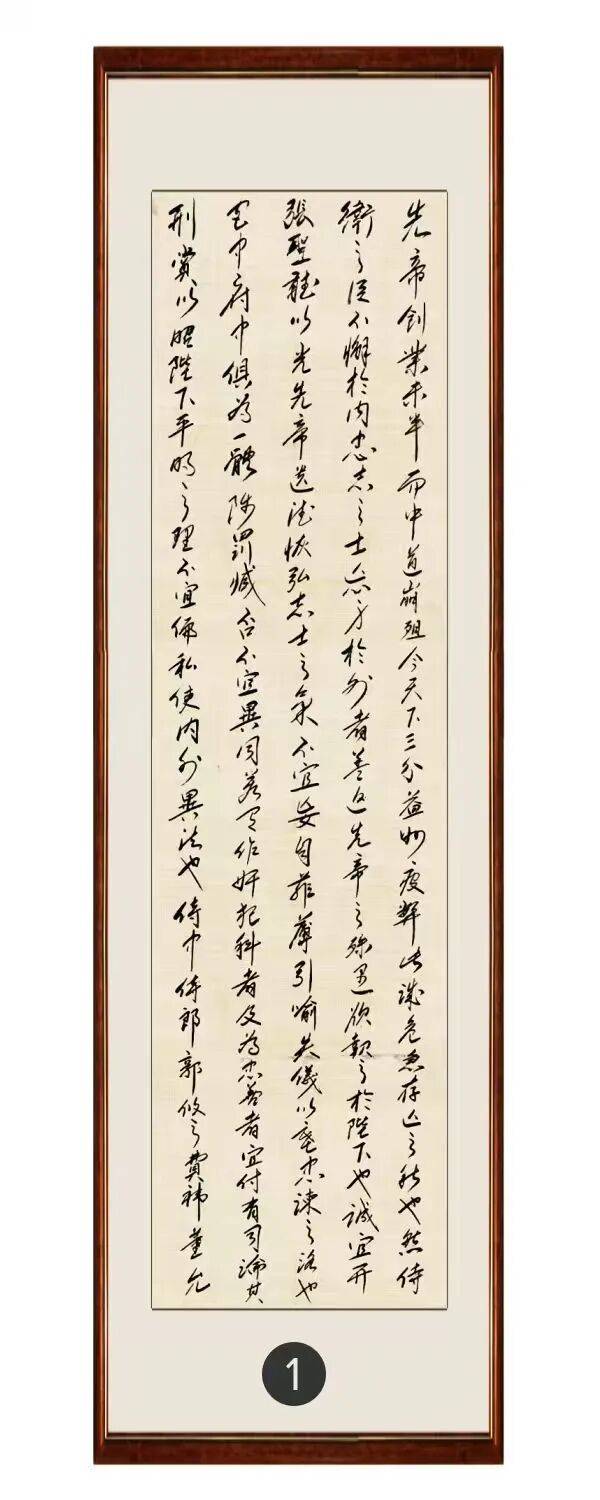 先帝創業未半而中道崩殂今天下三分益州疲弊此誠危急存亡之秋也然侍
衛之臣不懈於內忠志之士忘身於外者蓋追先帝之殊遇欲報之於陛下也誠宜開
張聖聽以光先帝遺德恢弘志士之氣不宜妄自菲薄引喻失儀以塞忠諫之路也
宮中府中俱為一體陟罰臧否不宜異同若有作奸犯科者及為忠善者宜付有司論其
刑賞以昭陛下平明之理不宜偏私使內外異法也侍中侍郎郭攸之費禕董允
1